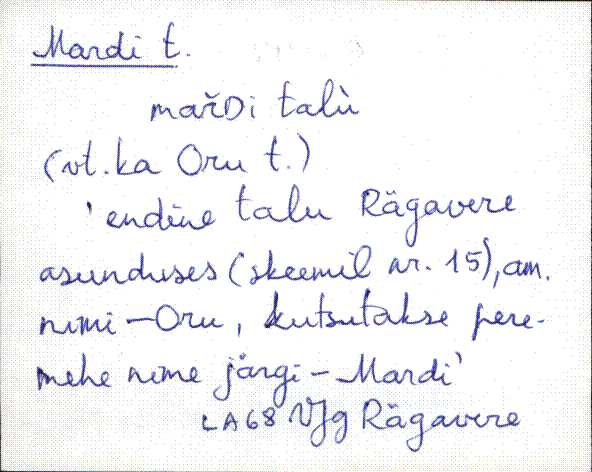 Mardi t.
mařDi talù
(vt. ka Oru t.)
'endine talu Rägavere
asunduses (skeemil nr. 15), am.
nimi – Oru, kutsutakse pere-
mehe nime järgi – Mardi'
LA68 VJg Rägavere